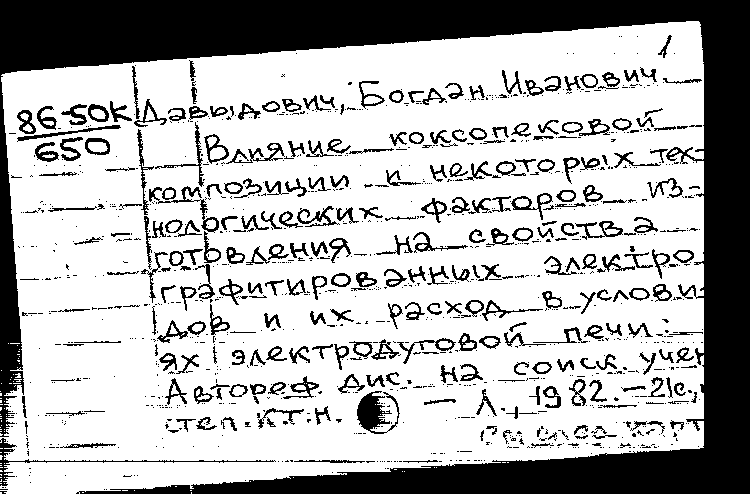 1
86-50К Давыдович, Богдан Иванович.
650 Влияние коксопековой
композиции и некоторых тех-
нологических факторов из-
готовления на свойства
графитированных электро
дов и их расход в услови
ях электродуговой печи:
Автореф. дис. на соиск. учен
степ. к.т.н. — Л., 1982. — 21с.,
См след карт